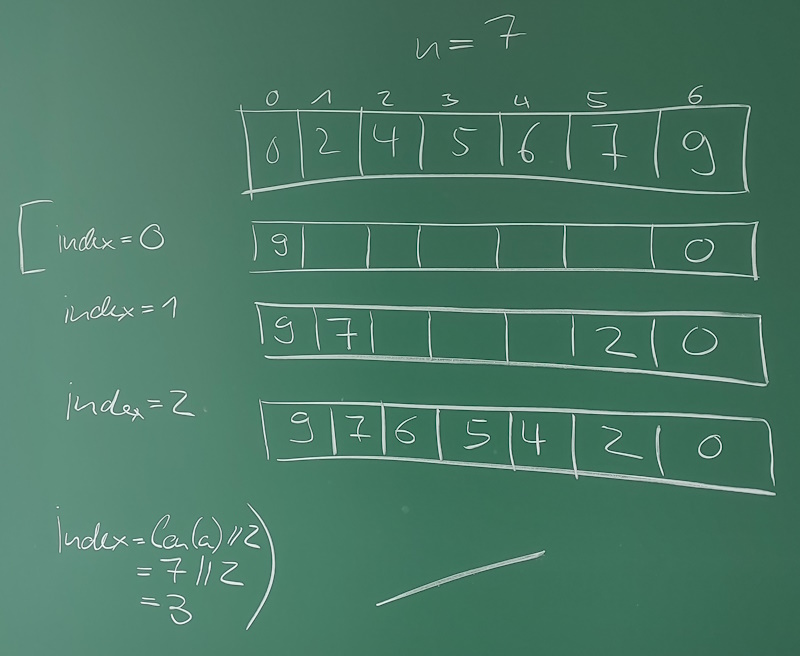 n = 7
0 1 2 3 4 5 6
0 2 4 5 6 7 9
index = 0 9 0
index = 1 9 7 2 0
index = 2 9 7 6 5 4 2 0
index = len(a) // 2
= 7 // 2
= 3